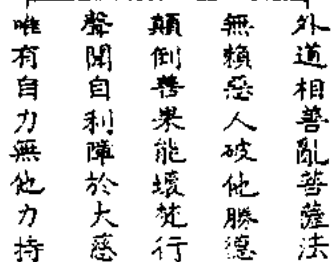 外道相善亂菩薩法
無賴惡人破他勝德
顛倒善果能壞梵行
聲聞自利障於大慈
唯有自力無他力持